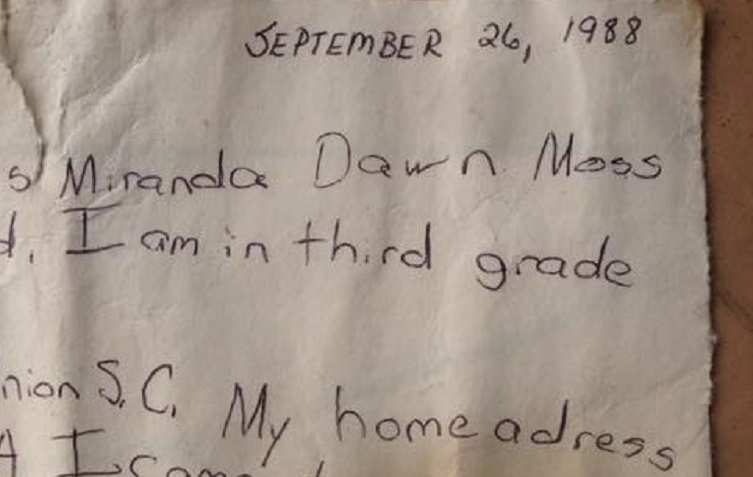 SEPTEMBER 26, 1988
s Miranda Dawn Moss
d. I am in third grade
nion S.C. My home adress
I came